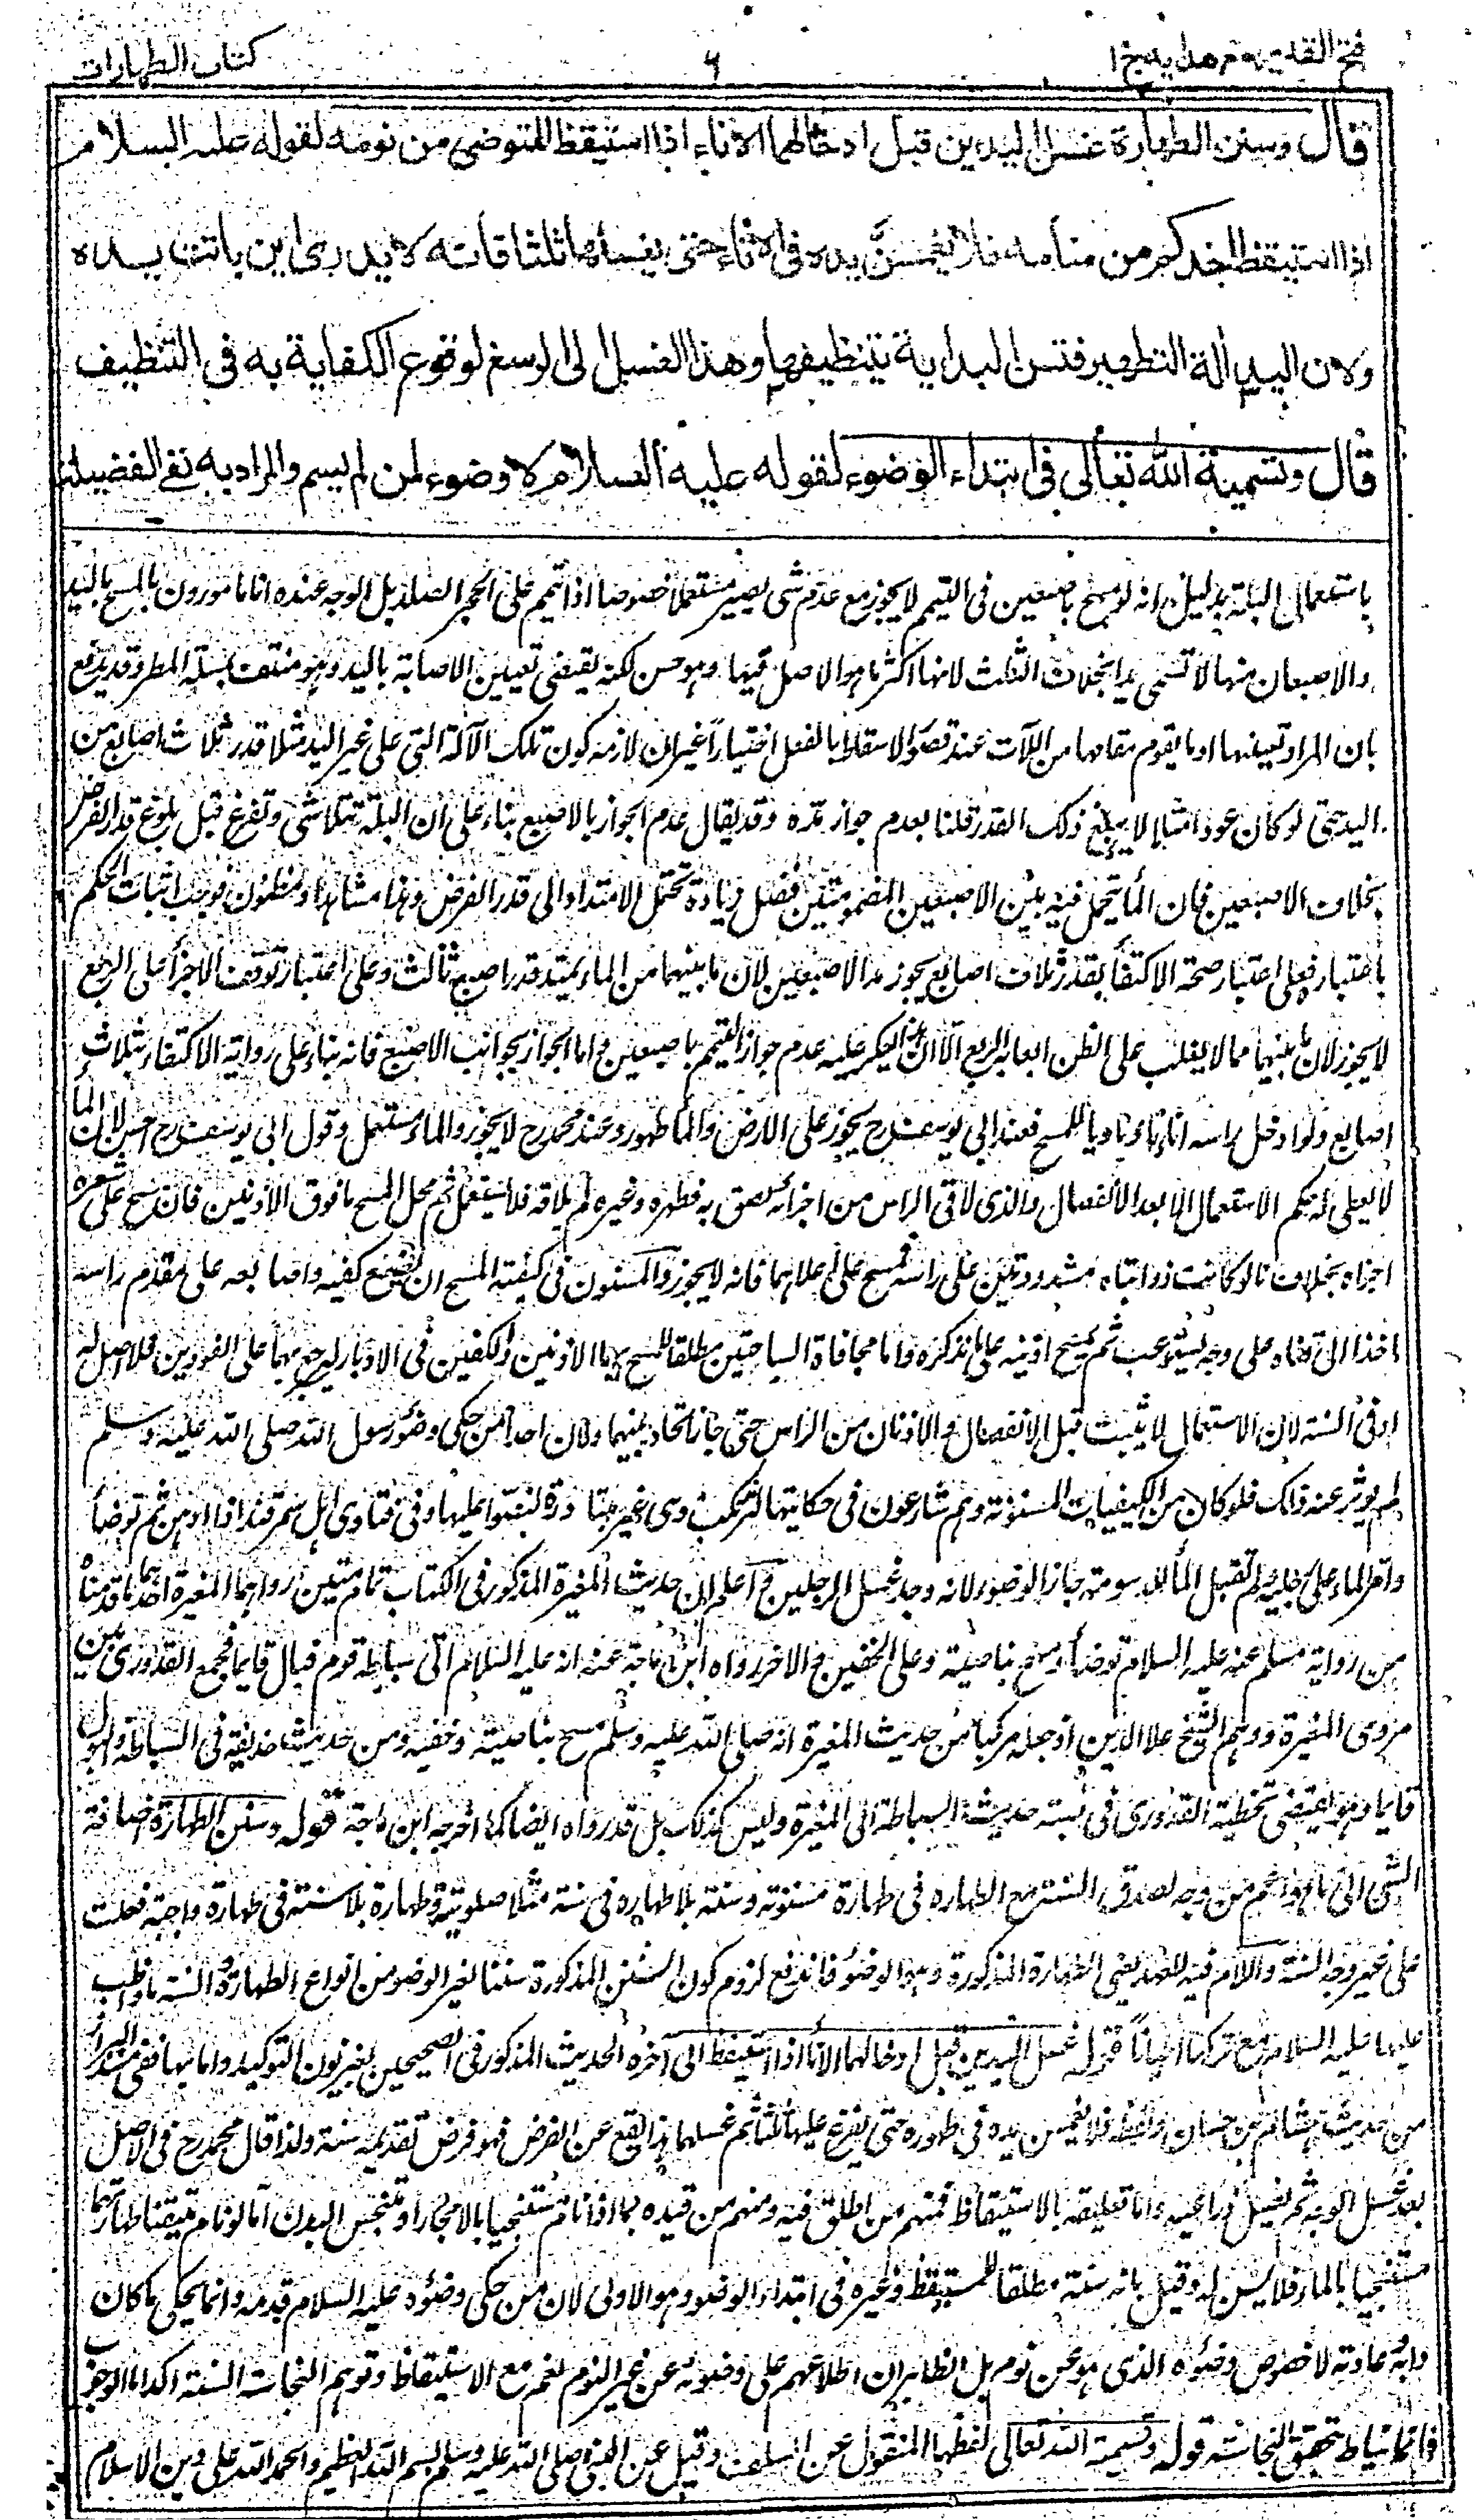 فتح القدير مع هدايه ج ١
٦
كتاب الطهارات
قال وسنن الطهارة غسل اليدين قبل ادخالهما الاناء اذا استيقظ المتوضى من نومه لقوله عليه السلام
اذا استيقظ احدكم من منامه فلا يغمسنَّ يده فى الاناء حتى يغسلها ثلثا فانه لا يدرى اين باتت يده
ولان اليد آلة التطهير فتسن البداية بتنظيفها وهذا الغسل الى الرسغ لوقوع الكفاية به فى التنظيف
قال وتسمية الله تعالى فى ابتداء الوضوء لقوله عليه السلام لا وضوء لمن لم يسم والمراد به نفى الفضيلة
باستعمال البلة بدليل انه لو مسح باصبعين فى التيمم لا يجوز مع عدم شى يصير مستعملا خصوصا اذا تيمم على الحجر الصلد بل الوجه عنده انا مامورون بالمسح باليد
والاصبعان منها لا تسمى يدا بخلاف الثلث لانها اكثر ما هو الاصل فيها وهو حسن لكنه يقتضى تعيين الاصابة باليد وهو منتف بمسئلة المطر وقد يدفع
بان المراد تعيينها او ما يقوم مقامها من الآلات عند قصد الاسقاط بالفعل اختياراً غير ان لازمه كون تلك الآلة التى على غير اليد مثلا قدر ثلاث اصابع من
اليد حتى لو كان عودا مثلا لا يبلغ ذلك القدر قلنا بعدم جواز مده وقد يقال عدم الجواز بالاصبع بناء على ان البلة تتلاشى وتفرغ قبل بلوغ قدر الفرض
بخلاف الاصبعين فان الماء يتحمل فيه بين الاصبعين المضمومتين فضل زيادة تحتمل الامتداد الى قدر الفرض وهذا مشاهد او مظنون فوجب اثبات الحكم
باعتباره فعلى اعتبار صحة الاكتفاء بقدر ثلاث اصابع يجوز مد الاصبعين لان ما بينهما من الماء يمتد قدر اصبع ثالث وعلى اعتبار توقف الاجزاء على الربع
لا يجوز لان ما بينهما مما لا يغلب على الظن ايعابه الربع الا ان هذا يعكر عليه عدم جواز التيمم باصبعين واما الجواز بجوانب الاصبع فانه بناء على رواية الاكتفاء بثلاث
اصابع ولو ادخل راسه اناء ماء ناويا للمسح فعند ابى يوسف رح يجوز على الارض والماء طهور وعند محمد رح لا يجوز والماء مستعمل وقول ابى يوسف رح احسن لان الماء
لا يعطى له حكم الاستعمال الا بعد الانفصال والذى لاقى الراس من اجزائه لصق به فطهره وغيره لم يلاقه فلا يستعمل ثم محل المسح ما فوق الاذنين فان مسح على شعره
اجزاه بخلاف ما لو كانت ذوابتاه مشدودتين على راسه فمسح على اعلاهما فانه لا يجوز والمسنون فى كيفية المسح ان يضع كفيه واصابعه على مقدم راسه
اخذا الى قفاه على وجه يستوعب ثم يمسح اذنيه على ما نذكره واما مجافاة السباحتين مطلقا ليمسح بهما الاذنين والكفين فى الادبار ليرجع بهما على الفودين فلا اصل له
فى السنة لان الاستعمال لا يثبت قبل الانفصال والاذنان من الراس حتى جاز اتحاد بلتهما ولان احدا ممن حكى وضوء رسول الله صلى الله عليه وسلم
لم يوثر عنه ذلك فلو كان من الكيفيات المسنونة وهم شارعون فى حكايتها لترتكب وهى غير متبادرة لنصوا عليها وفى فتاوى اهل سمرقند اذا ادهن ثم توضأ
وامر الماء على رجليه لم تقبل الماء للدسومة جاز الوضوء لانه وجد غسل الرجلين اعلم ان حديث المغيرة المذكور فى الكتاب تمام متنين رواهما المغيرة احدهما ما قدمناه
من رواية مسلم عنه عليه السلام توضأ ومسح بناصيته وعلى الخفين والاخر رواه ابن ماجة عنه انه عليه السلام اتى سباطة قوم فبال قايما فجمع القدورى بين
مروى المغيرة ووهم الشيخ علاء الدين اذ جعله مركبا من حديث المغيرة انه صلى الله عليه وسلم مسح بناصيته وخفيه ومن حديث حذيفة فى السباطة والبول
قايما وهو يقتضى تخطية القدورى فى نسبته حديث السباطة الى المغيرة وليس كذلك بل قد رواه ايضا كما اخرجه ابن ماجة قوله وسنن الطهارة اضافة
الشى الى ما هو اعم من وجه لصدق السنة مع الطهارة فى طهارة مسنونة وسنة بلا طهارة فى سنة مثلا صلوتية وطهارة بلا سنة فى طهارة واجبة فعلت
على غير وجه السنة واللام فيه للعهد يعنى الطهارة المذكورة وهى الوضوء فاندفع لزوم كون السنن المذكورة سننا لغير الوضوء من انواع الطهارة والسنة ما واظب
عليها عليه السلام مع تركها احياناً قوله غسل اليدين قبل ادخالهما الاناء اذا استيقظ الى آخره الحديث المذكور فى الصحيحين بغير نون التوكيد واما بها ففى مسند البزار
من حديث هشام بن حسان ولفظه فلا يغمسن يده فى طهوره حتى يفرغ عليها ثلثا ثم غسلهما هذا يقع عن الفرض فهو فرض تقديمه سنة ولذا قال محمد رح فى الاصل
بعد غسل الوجه ثم يغسل ذراعيه واما تعليقه بالاستيقاظ فمنهم من اطلق فيه ومنهم من قيده بما اذا نام مستنجيا بالاحجار او متنجس البدن اما لو نام متيقنا طهارتهما
مستنجيا بالماء فلا يسن له وقيل بانه سنة مطلقا للمستيقظ وغيره فى ابتداء الوضوء وهو الاولى لان من حكى وضوءه عليه السلام قدمه وانما يحكى ما كان
دابه وعادته لا خصوص وضوءه الذى هو عن نوم بل الظاهر ان اطلاعهم على وضوئه عن غير النوم نعم مع الاستيقاظ وتوهم النجاسة السنة اكد اما الوجوب
فانما يناط بتحقق النجاسة قوله وتسمية الله تعالى لفظها المنقول عن السلف وقيل عن النبى صلى الله عليه وسلم بسم الله العظيم والحمد لله على دين الاسلام